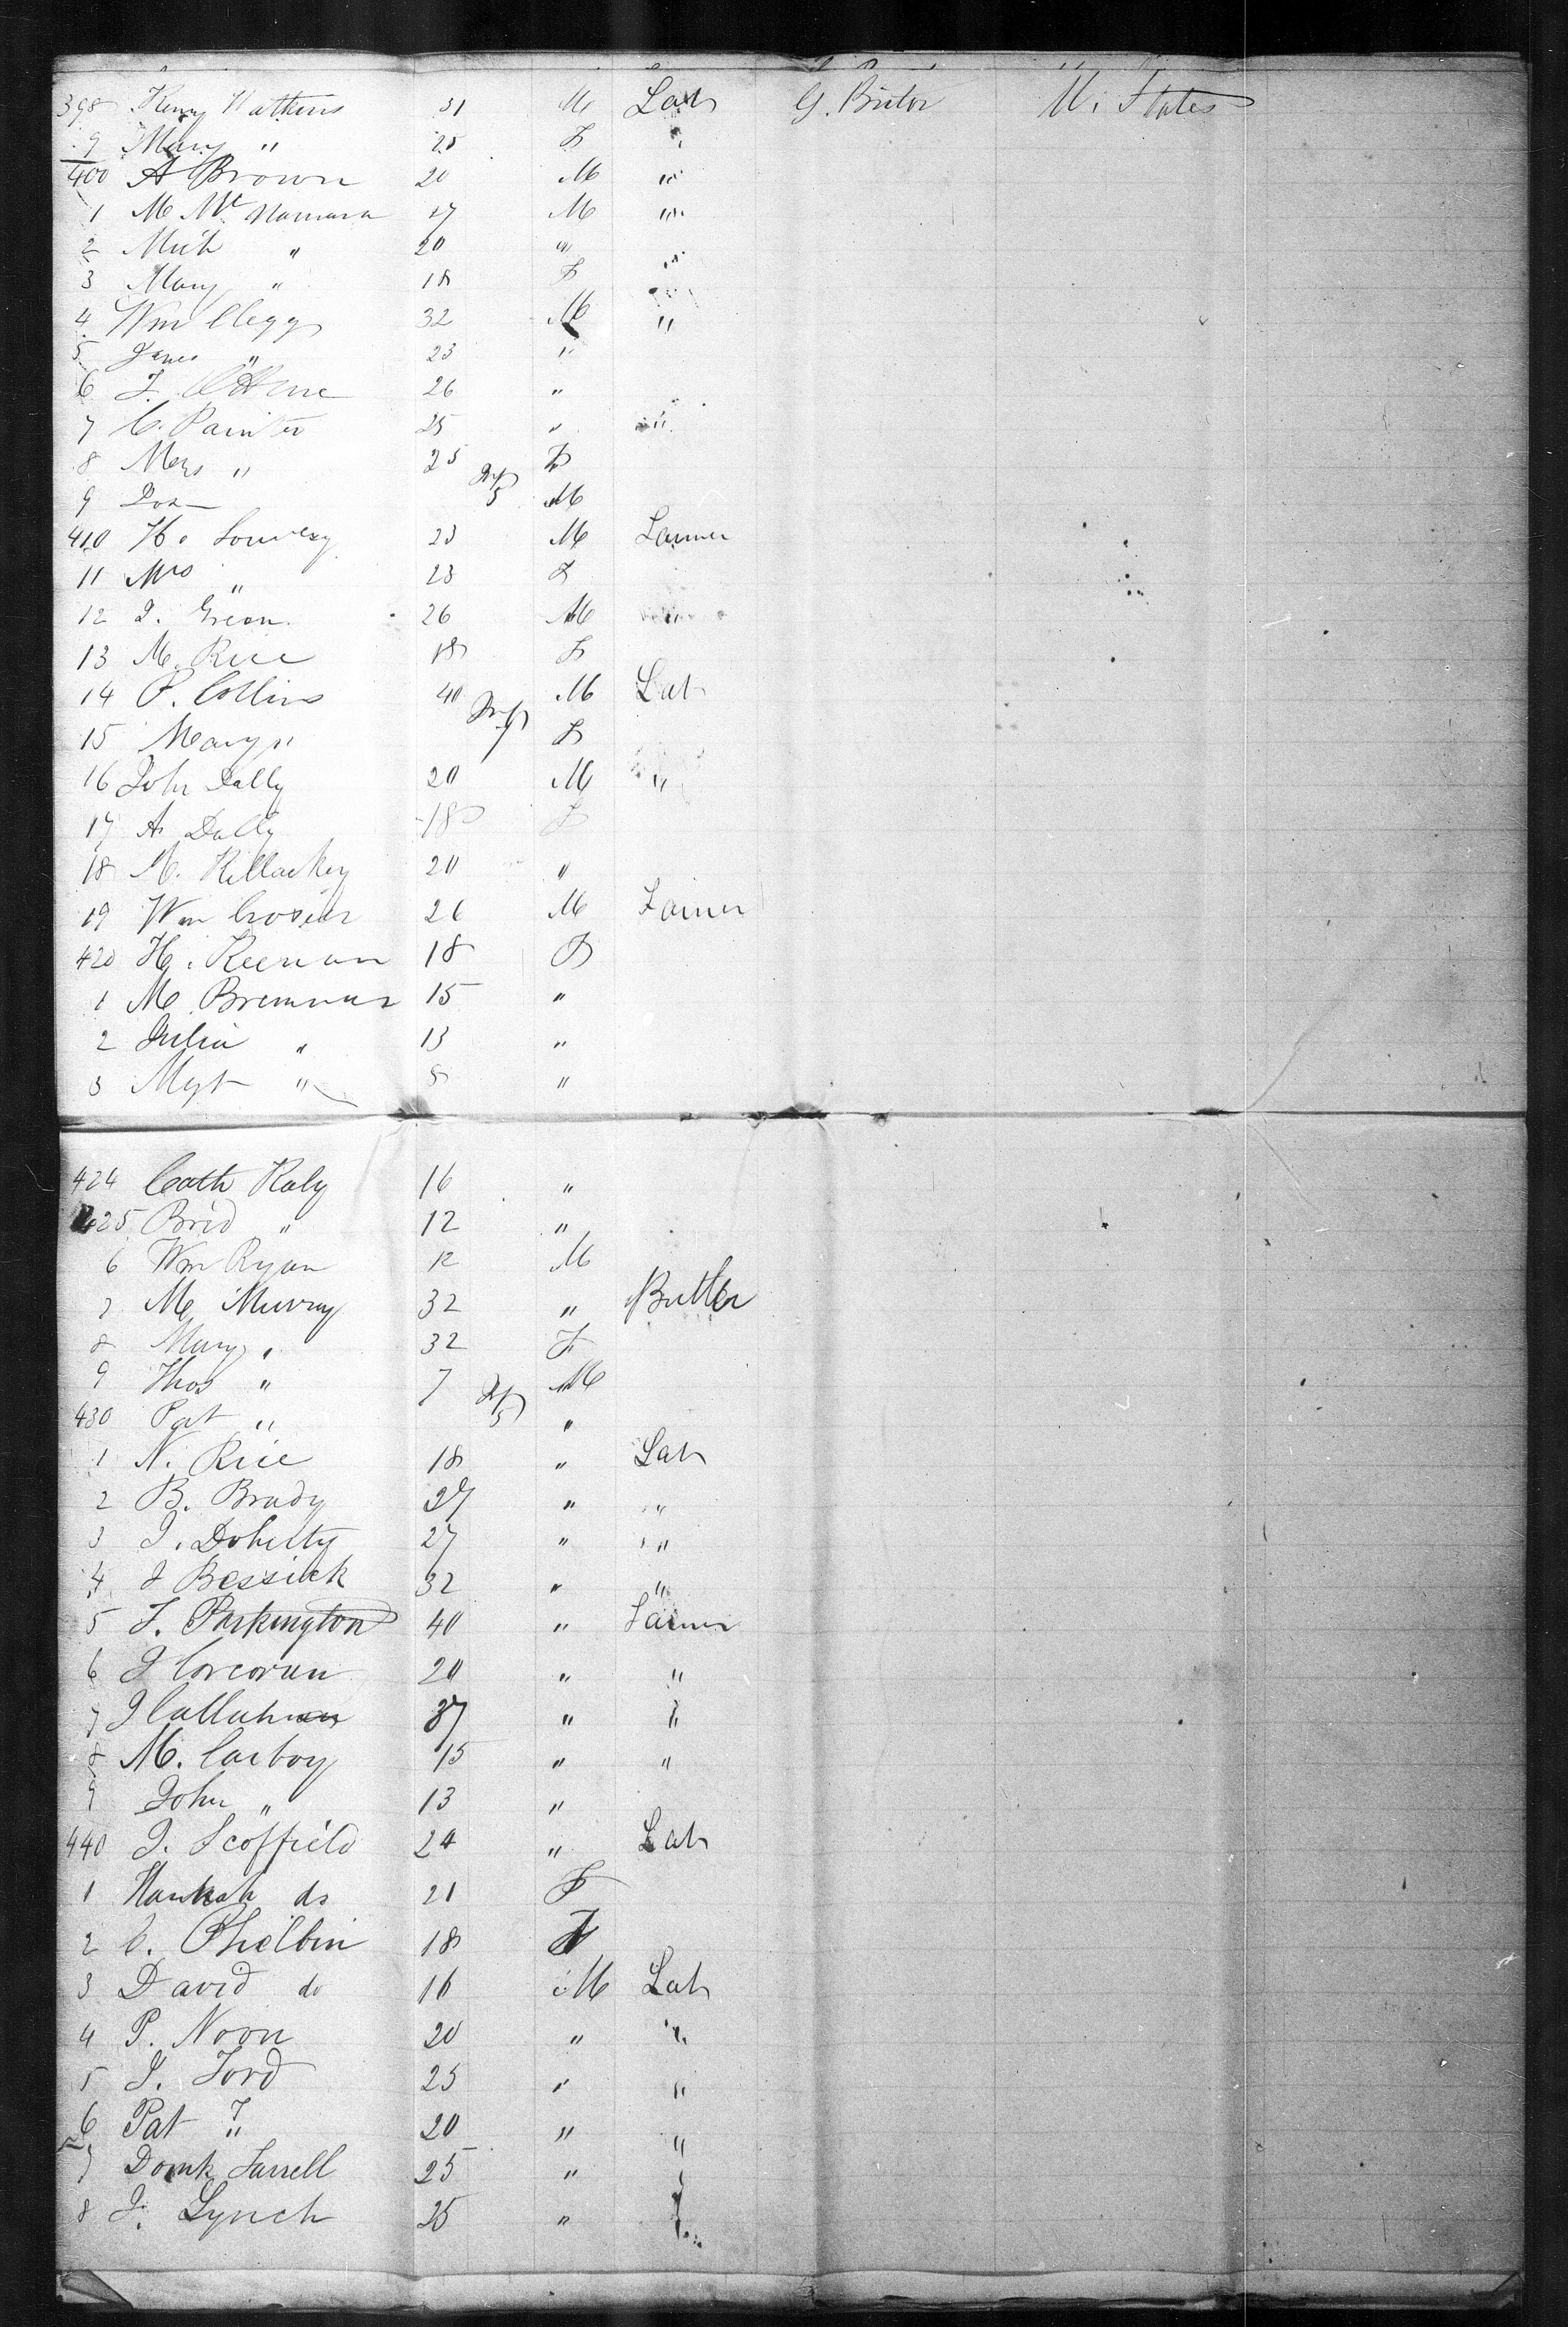 398 Henry Watkins 31 M Lab G. Britn U. States
9 Mary " 25 F "
400 A Brown 20 M "
1 M McNamara 17 M "
2 Mich " 20 " "
3 Mary " 18 F "
4 Wm Clegg 32 M "
5 James " 23 "
6 26 "
7 C. Painter 25 " "
8 Mrs " 25 F
9 Inf 5 M
410 H. 23 M Farmer
11 Mrs " 23 F
12 J. Green 26 M "
13 M. Rice 18 F
14 P. Collins 40 M Lab
15 Mary " Inf 7 F
16 John Dally 20 M "
17 A. Dally 18 F
18 M. Killackey 20 "
19 Wm Crosier 26 M Farmer
420 H. Keenan 18 F
1 M. Bremnar 15 "
2 Julia " 13 "
3 Mgt " 8 "
424 Cath Kaly 16 "
425 Brid " 12 "
6 Wm Ryan 12 M
7 M. Murray 32 " Butler
8 Mary " 32 F
9 Thos " 7 M
430 Pat " Inf 5 "
1 N. Rice 18 " Lab
2 B. Brady 27 " "
3 J. Doherty 27 " "
4 J Bessick 32 " "
5 J. Parkington 40 " Farmer
6 J Corcoran 20 " "
7 J Callahan 37 " "
8 M. Carboy 15 " "
9 John " 13 "
440 J. Scoffield 24 " Lab
1 Hannah do 21 F
2 C. Philbin 18 F
3 David do 16 M Lab
4 P. Noon 20 " "
5 J. Ford 25 " "
6 Pat " 20 " "
7 Domk Farrell 25 "
8 J. Lynch 25 "